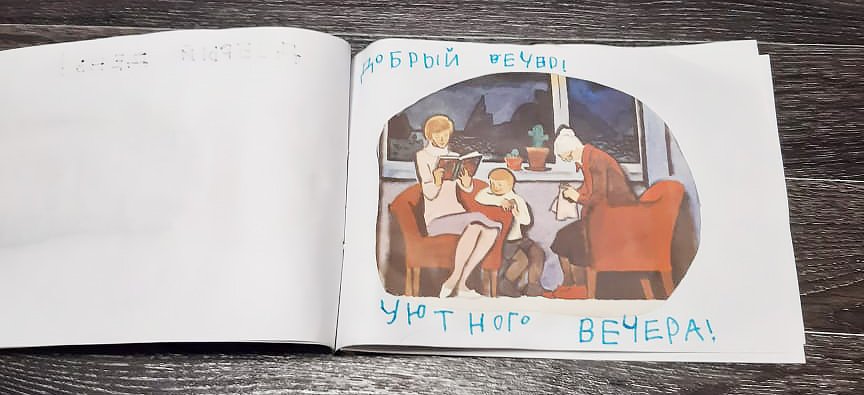 ДОБРЫЙ ВЕЧЕР!
УЮТНОГО ВЕЧЕРА!